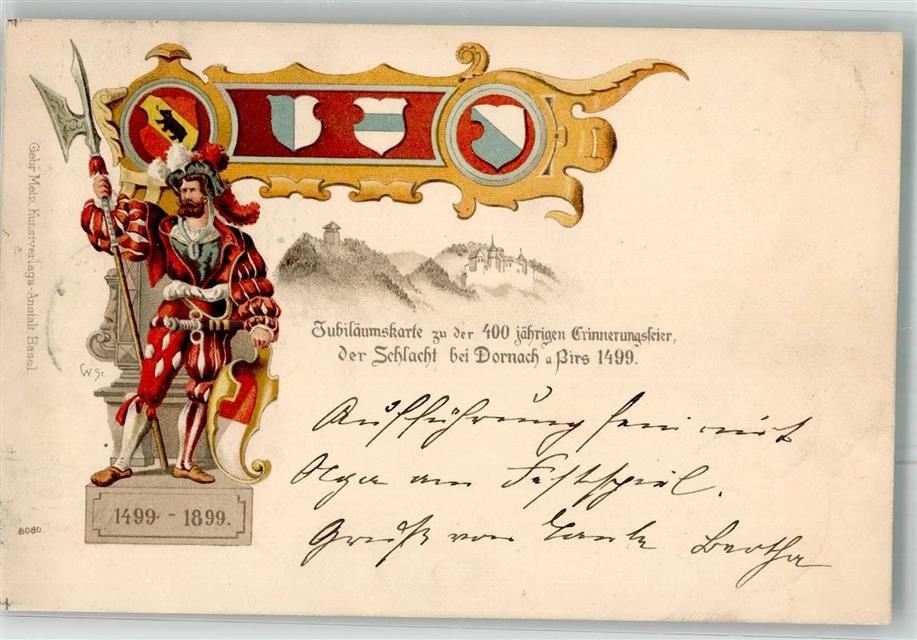 Gebr. Metz, Kunstverlags-Anstalt Basel.
Jubiläumskarte zu der 400 jährigen Erinnerungsfeier,
der Schlacht bei Dornach a Birs 1499.
Aufführung mit
Olga am Festspiel.
Gruß von Tante Bertha
W St.
1499. - 1899.
8080